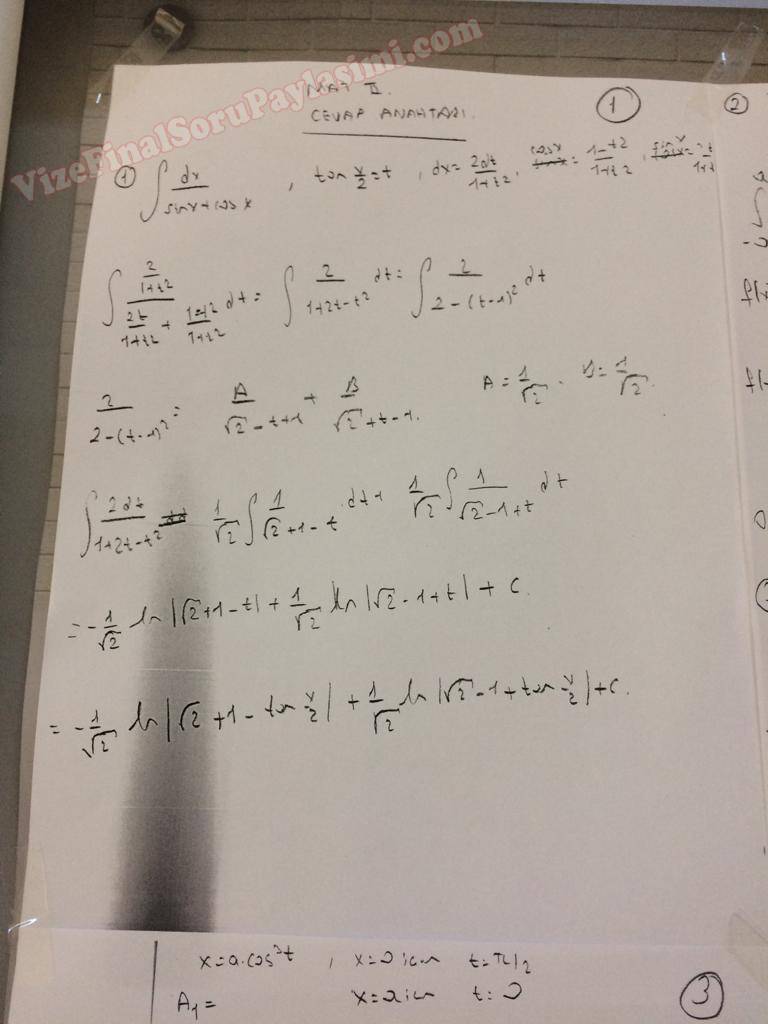 VizeFinalSoruPaylasimi.com
MAT II.
CEVAP ANAHTARI.
1
2
1) ∫ dx/(sinx+cosx) , tan x/2 = t , dx = 2dt/(1+t²) , cosx = (1-t²)/(1+t²) , sinx = 2t/(1+t
∫ (2/(1+t²))/(2t/(1+t²) + (1-t²)/(1+t²)) dt = ∫ 2/(1+2t-t²) dt = ∫ 2/(2-(t-1)²) dt
2/(2-(t-1)²) = A/(√2-t+1) + B/(√2+t-1) A = 1/√2 . B = 1/√2 .
∫ 2dt/(1+2t-t²) = 1/√2 ∫ 1/(√2+1-t) dt + 1/√2 ∫ 1/(√2-1+t) dt
= -1/√2 ln|√2+1-t| + 1/√2 ln|√2-1+t| + C.
= -1/√2 ln|√2+1-tan x/2| + 1/√2 ln|√2-1+tan x/2| + C.
x=a.cos³t , x=0 için t=π/2
A₁= x=a için t=0
3